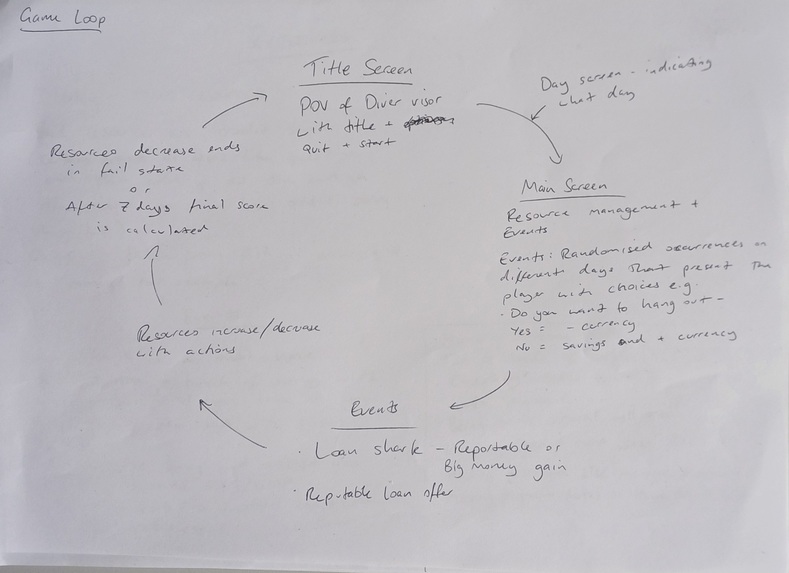 Game Loop
Title Screen
POV of Diver visor
with title +
Quit + start
Day screen - indicating
what day
Main Screen
Resource management +
Events
Events: Randomised occurrences on
different days that present the
player with choices e.g.
· Do you want to hang out -
Yes = - currency
No = savings and + currency
Events
· Loan shark - Reportable or
Big money gain
· Reputable loan offer
Resources increase/decrease
with actions
Resources decrease ends
in fail state
or
After 7 days final score
is calculated